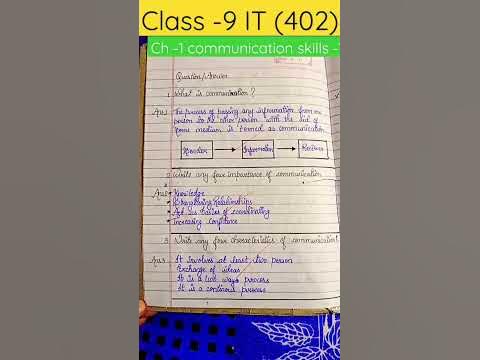 Class -9 IT (402)
Ch -1 communication skills -
Question/Answer
1. What is communication ?
Ans The process of passing any information from one
person to the other person with the aid of
some medium is termed as communication
Sender → Information → Receiver
2. Write any four importance of communication.
Ans • Knowledge
• Relationships
• Act as basis of coordinating
• Increasing Confidence
3. Write any four characteristics of communication?
Ans It involves at least two person
Exchange of ideas
It is a two way process
It is a continous process